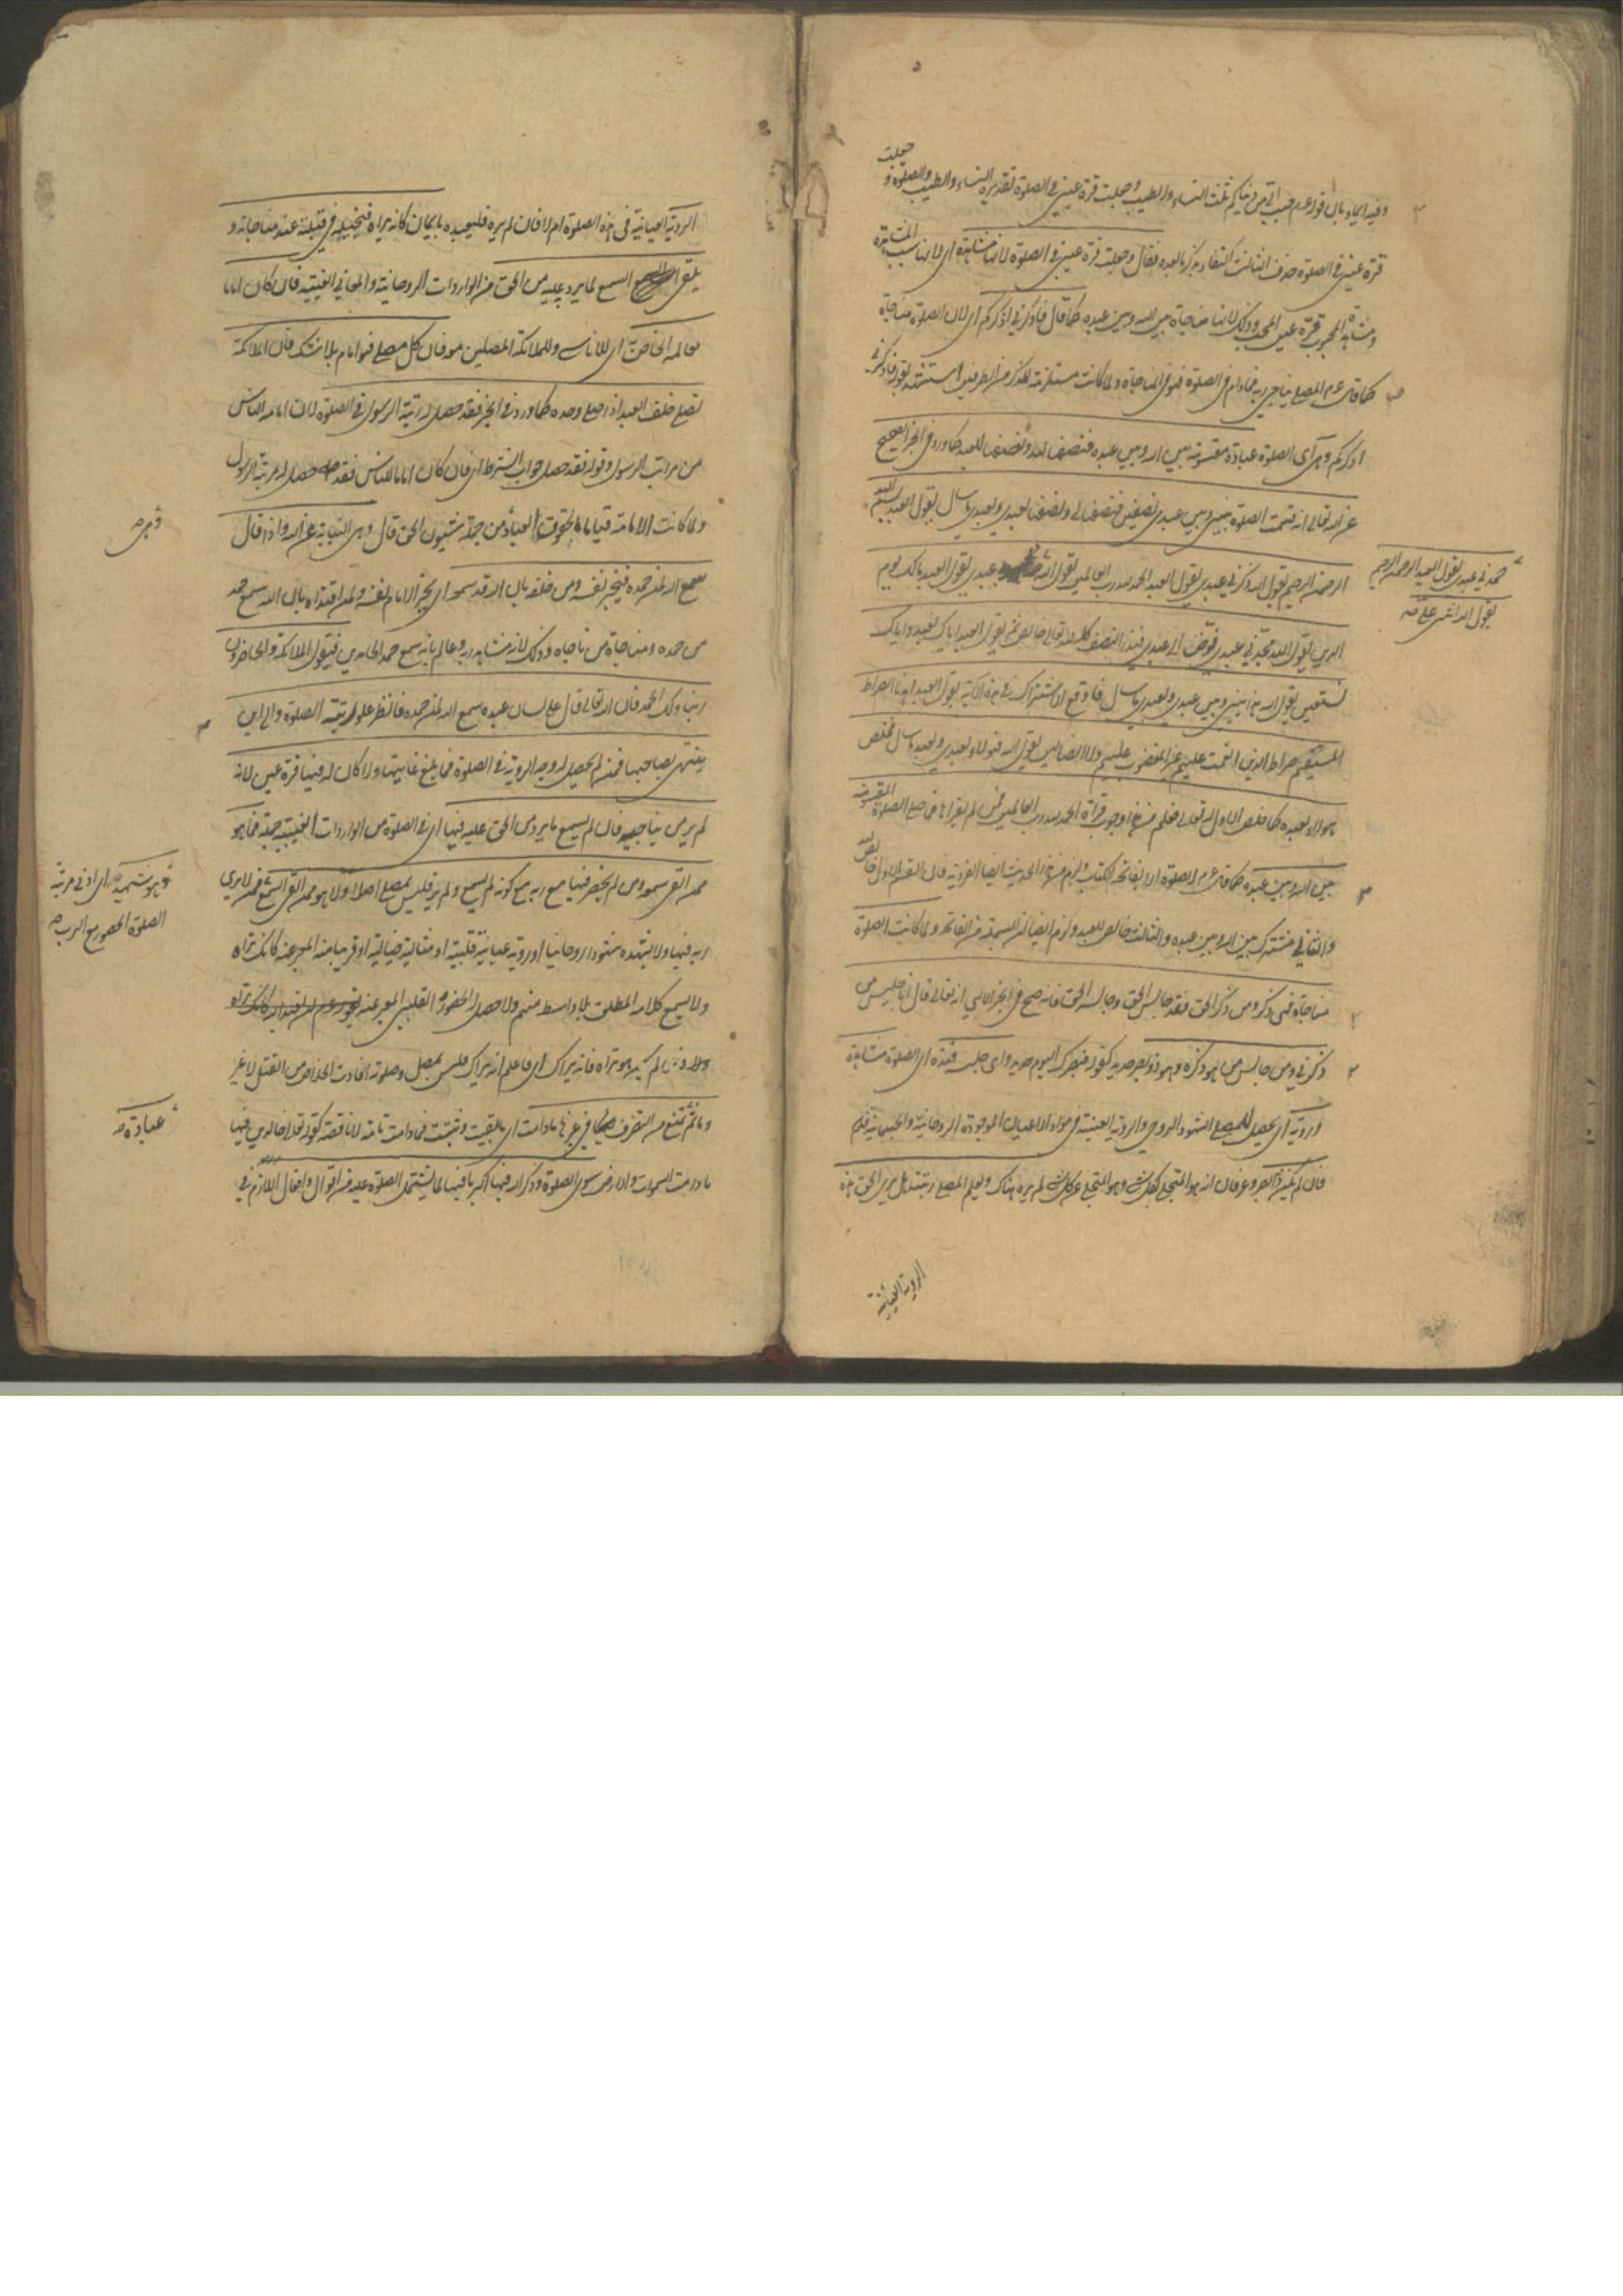 وفيه ايماء بان قوله عم حبب الي من دنياكم ثلث النساء والطيب وجعلت قرة عيني في الصلوة تقديره النساء والطيب والصلوة و جعلت
قرة عيني في الصلوة حذف الثالث اكتفاء بذكر ما بعده فقال وجعلت قرة عيني في الصلوة لانها مشاهدة اي لانها سبب المشاهدة
ومشاهدة المحبوب قرة عين المحب وذلك لانها مناجاة بين الله وبين عبده كما قال فاذكروني اذكركم اي لان الصلوة مناجاة
كما قال عم المصلي يناجي ربه فما دام في الصلوة فهو في المناجاة ولما كانت مستلزمة للذكر من الطرفين استشهد بقوله فاذكروني
اذكركم وهي اي الصلوة عبادة مقسومة بين الله وبين عبده فنصفها لله ونصفها للعبد كما ورد في الخبر الصحيح
عن الله تعالى انه قسمت الصلوة بيني وبين عبدي نصفين فنصفها لي ونصفها لعبدي ولعبدي ما سال يقول العبد بسم الله
الرحمن الرحيم يقول الله ذكرني عبدي يقول العبد الحمد لله رب العالمين يقول الله عبدي يقول العبد مالك يوم
حمدني عبدي يقول العبد الرحمن الرحيم
يقول الله اثنى علي
الدين يقول الله مجدني عبدي فوض الي عبدي فهذا النصف كله لله تعالى خالص ثم يقول العبد اياك نعبد واياك
نستعين يقول الله هذا بيني وبين عبدي ولعبدي ما سال فاوقع الاشتراك في هذه الآية يقول العبد اهدنا الصراط
المستقيم صراط الذين انعمت عليهم غير المغضوب عليهم ولا الضالين يقول الله فهؤلاء لعبدي ولعبدي ما سال فخلص
هؤلاء لعبده كما خلص الاول له تعالى فعلم من هذا وجوب قراءة الحمد لله رب العالمين فمن لم يقراها فما صلى الصلوة المقسومة
بين الله وبين عبده كما قال عم لا صلوة الا بفاتحة الكتاب ولزم من هذا الحديث ايضا الفردية فان القسم الاول خالص لله
والثاني مشترك بين الله وبين عبده والثالث خالص للعبد ولزم ايضا ان البسملة من الفاتحة ولما كانت الصلوة
مناجاة فهي ذكر ومن ذكر الحق فقد جالس الحق وجالسه الحق فانه صح في الخبر الالهي انه تعالى قال انا جليس من
ذكرني ومن جالس من هو ذكره وهو ذو بصر حديد كقوله فبصرك اليوم حديد راى جليسه فهذه اي الصلوة مشاهدة
ورؤية اي يحصل للمصلي الشهود الروحي والرؤية العينية في مواد الاعيان الموجودة الروحانية والجسمانية
فان لم يكن ذا بصر وعرفان انه هو المتجلي لكل شي وهو المتجلي عن كل شي لم يره هناك ويعلم المصلي رتبته هل يرى الحق هذه
الرؤية العيانية
الرؤية العيانية في هذه الصلوة ام لا فان لم يره فليعبده بايمان كانه يراه فيتخيله في قبلته عند مناجاته و
يلقي السمع لما يرد عليه من الحق من الواردات الروحانية والمعاني الغيبية فان كان اماما
لعالمه الخاص اي للاناسي وللملائكة المصلين معه فان كل مصلي فهو امام بلا شك فان الملائكة
تصلي خلف العبد اذا صلى وحده كما ورد في الخبر فقد حصل له رتبة الرسول في الصلوة لان امامة الناس
من مراتب الرسول وقوله فقد حصل جواب الشرط اي فان كان اماما للناس فقد حصل له مرتبة الرسول
ولما كانت الامامة قياما بالحقوق العباد من جهة شئون الحق قال وهي النيابة عن الله واذا قال
وهي
سمع الله لمن حمده فيخبر نفسه ومن خلفه بان الله قد سمعه اي يخبر الامام لنفسه ولمن اقتداه بان الله سمع حمد
من حمده ومناجاة من ناجاه وذلك لانه مشاهد ربه وعالم بانه سمع حمد الحامدين فيقول الملائكة والحاضرون
ربنا ولك الحمد فان الله تعالى قال على لسان عبده سمع الله لمن حمده فانظر علو رتبة الصلوة والى اين
ينتهي بصاحبها فمن لم يحصل له وجه الرؤية في الصلوة فما بلغ غايتها ولا كان له فيها قرة عين لانه
لم ير من يناجيه فان لم يسمع ما يرد من الحق عليه فيها اي في الصلوة من الواردات الغيبية جملة فما هو
ممن القى سمعه ومن لم يحضر فيها مع ربه مع كونه لم يسمع ولم ير فليس بمصل اصلا ولا هو ممن القى السمع فمن لا يرى
وهو شهيد اي ادنى مرتبة
الصلوة الحضور مع الرب
ربه فيها ولا يشهده شهودا روحانيا او رؤية عيانية قلبية او مثالية خيالية او قريبا منه المعبر عنه كانك تراه
ولا يسمع كلامه المطلق بلا واسطة منهم ولا حصل له الحضور القلبي المعبر عنه بقوله عم ان تعبد الله كانك تراه
لم تكن تراه فانه يراك اي فاعلم انه يراك فليس بمصل وصلوته افادت الخلاص من القتل لا غير
وما ثم تمنع من التصرف في غيرها ما دامت اي ما بقيت وثبتت فما دامت تامة لا ناقصة كقوله تعالى خالدين فيها
عبادة
ما دامت السموات والارض سوى الصلوة وذكر الله فيها اكبر ما فيها لما يشتمل الصلوة عليه من اقوال وافعال اللازم في